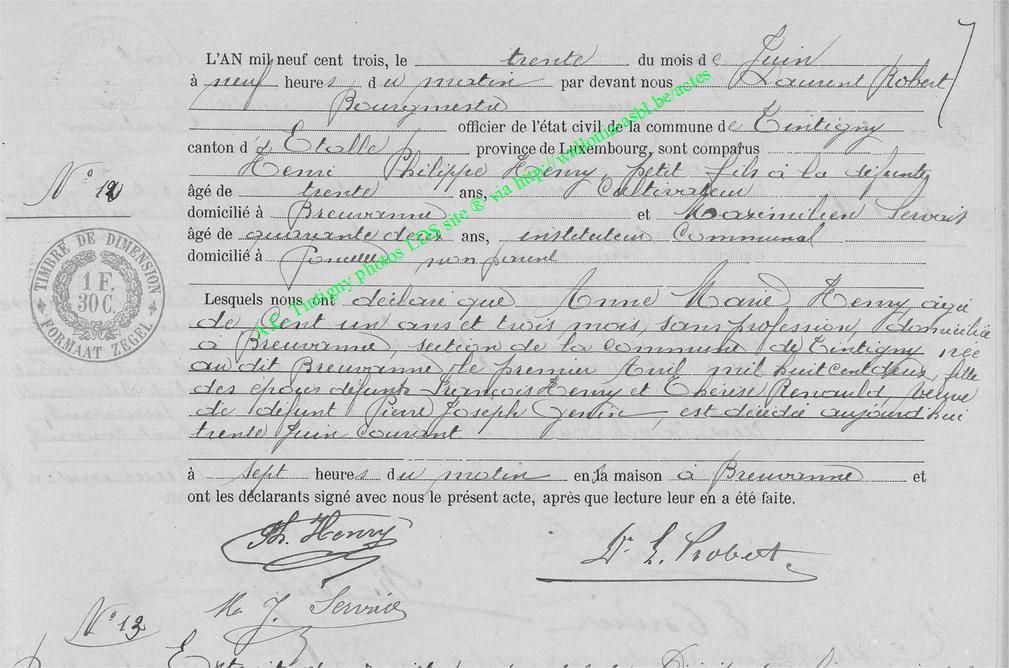 L'AN mil neuf cent trois, le trente du mois de Juin
à neuf heures du matin par devant nous Laurent Robert
Bourgmestre
officier de l'état civil de la commune de Tintigny
canton d'Etalle province de Luxembourg, sont comparus
Henri Philippe Henry, petit fils à la défunte
âgé de trente ans, Cultivateur
domicilié à Breuvanne et Maximilien Servais
âgé de quarante deux ans, instituteur Communal
domicilié à non parent
Lesquels nous ont déclaré que Anne Marie Henry, âgée
de Cent un ans et trois mois, sans profession, domiciliée
à Breuvanne, section de la commune de Tintigny née
au dit Breuvanne, le premier Avril mil huit cent deux, fille
des époux défunts François Henry et Thérèse Renauld, veuve
de défunt Pierre Joseph est décédée aujourd'hui
trente Juin courant
à sept heures du matin en la maison à Breuvanne et
ont les déclarants signé avec nous le présent acte, après que lecture leur en a été faite.
Ph. Henry
Dr L. Robert
J. Servais
N° 12
TIMBRE DE DIMENSION
1 F.
30 C.
FORMAAT ZEGEL
N° 13
A.E. Tintigny photos LDS site ® via http://wallonia.asbl.be/actes